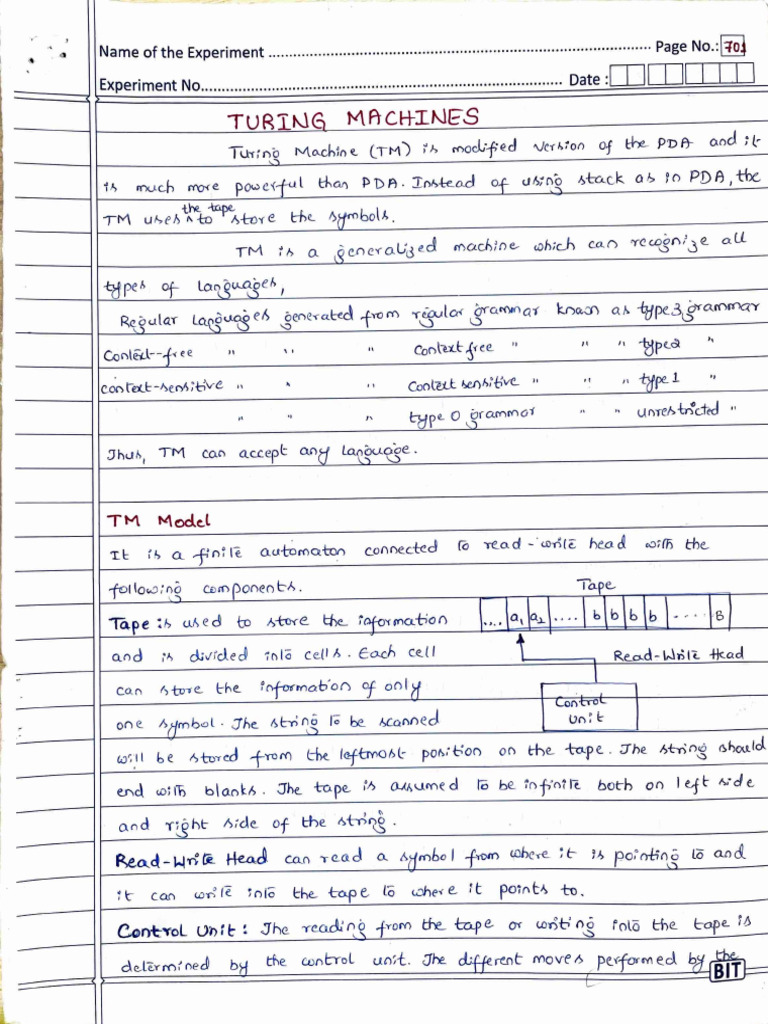 Name of the Experiment ........................ Page No.: 701
Experiment No........................ Date :
TURING MACHINES
Turing Machine (TM) is modified version of the PDA and it
is much more powerful than PDA. Instead of using stack as in PDA, the
TM uses the tape to store the symbols.
TM is a generalized machine which can recognize all
types of languages,
Regular languages generated from regular grammar known as type3 grammar
Context-free " " " Context free " " " type2 "
context-sensitive " " " Context sensitive " " " type 1 "
" " " type 0 grammar " " unrestricted "
Thus, TM can accept any language.
TM Model
It is a finite automaton connected to read-write head with the
following components.
Tape
Tape is used to store the information
.... a1 a2 .... b b b b ..... B
and is divided into cells. Each cell
Read-Write Head
can store the information of only
Control
Unit
one symbol. The string to be scanned
will be stored from the leftmost position on the tape. The string should
end with blanks. The tape is assumed to be infinite both on left side
and right side of the string.
Read-Write Head can read a symbol from where it is pointing to and
it can write into the tape to where it points to.
Control Unit: The reading from the tape or writing into the tape is
determined by the control unit. The different moves performed by the
BIT